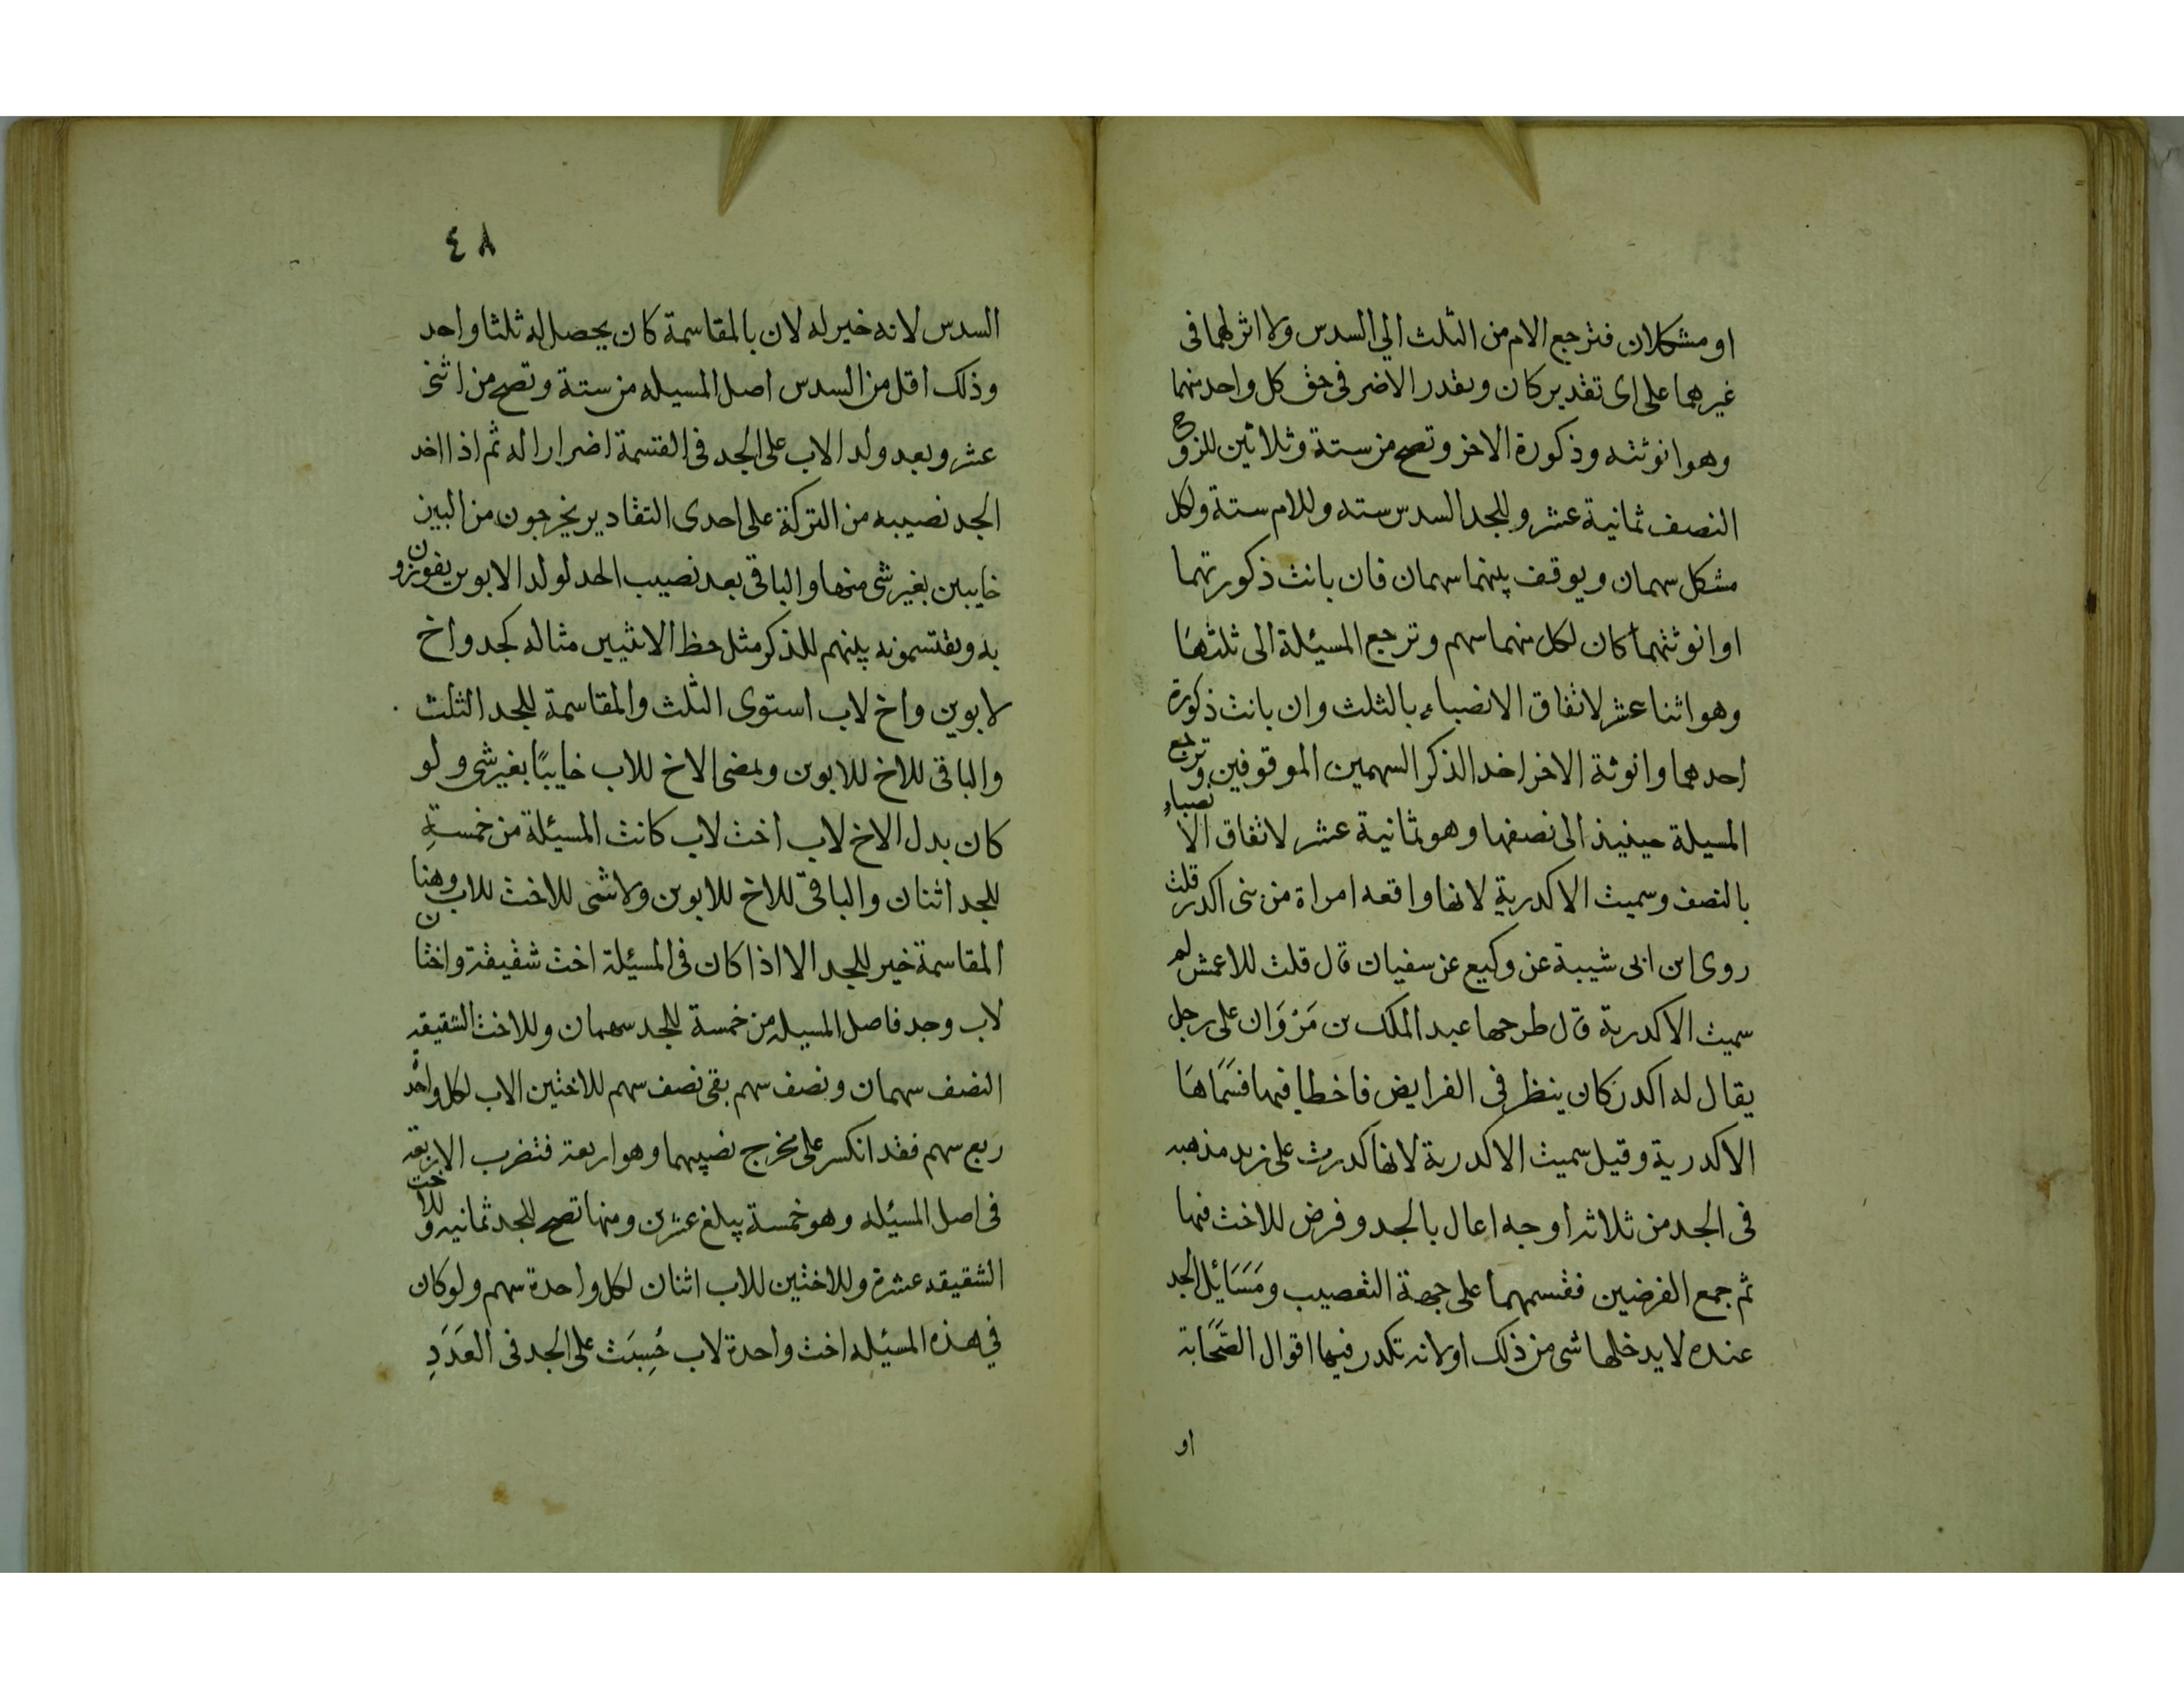 او مشكلان فترجع الام من الثلث الي السدس ولا اثر لهما فى
غيرهما على اى تقدير كان ويقدر الاضر فى حق كل واحد منهما
وهو انوثته وذكورة الاخر وتصح من ستة وثلاثين للزوج
النصف ثمانية عشر وللجد السدس سته وللام ستة ولكل
مشكل سهمان ويوقف بينهما سهمان فان بانت ذكورتهما
او انوثتهما كان لكل منهما سهم وترجع المسيئلة الى ثلثها
وهو اثنا عشر لاتفاق الانصباء بالثلث وان بانت ذكورة
احدهما وانوثة الاخر اخد الذكر السهمين الموقوفين وترجع
المسيلة حينيذ الى نصفها وهو ثمانية عشر لاتفاق الانصباء
بالنصف وسميت الاكدرية لانها واقعه امراة من بنى اكدر قلت
روى ابن ابى شيبة عن وكيع عن سفيان قال قلت للاعمش لم
سميت الاكدرية قال طرحها عبد الملك بن مَرْوَان على رجل
يقال له اكدر كان ينظر فى الفرايض فاخطا فيها فسَمَّاهَا
الاكدرية وقيل سميت الاكدرية لانها كدرت على زيد مذهبه
فى الجد من ثلاثه اوجه اعال بالجد وفرض للاخت فيها
ثم جمع الفرضين فقسمهما على جهة التعصيب ومَسَايُل الجد
عنده لا يدخلها شى من ذلك او لانه تكدر فيها اقوال الصَّحَابة
او
٤٨
السدس لانه خير له لان بالمقاسمة كان يحصل له ثلثا واحد
وذلك اقل من السدس اصل المسيله من ستة وتصح من اثنى
عشر ويعد ولد الاب على الجد فى القسمة اضرارا له ثم اذا اخد
الجد نصيبه من التركة على احدى التقادير يخرجون من البين
خايبين بغير شى منها والباقى بعد نصيب الجد لولد الابوين يفوزون
به ويقتسمونه بينهم للذكر مثل حظ الانثيين مثاله كجد واخ
لابوين واخ لاب استوى الثلث والمقاسمة للجد الثلث
والباقى للاخ للابوين ويمضى الاخ للاب خايبًا بغير شى ولو
كان بدل الاخ لاب اخت لاب كانت المسيئلة من خمسةٍ
للجد اثنان والباقى للاخ للابوين ولا شى للاخت للاب وهنا
المقاسمة خير للجد الا اذا كان فى المسيئلة اخت شقيقة واختان
لاب وجد فاصل المسيله من خمسة للجد سهمان وللاخت الشقيقه
النصف سهمان ونصف سهم بقى نصف سهم للاختين الاب لكل واحد
ربع سهم فقد انكسر على مخرج نصيبهما وهو اربعة فتضرب الاربعة
فى اصل المسيئله وهو خمسة يبلغ عشرين ومنها تصح للجد ثمانيه وللاخت
الشقيقه عشرة وللاختين للاب اثنان لكل واحدة سهم ولو كان
في هذه المسيئله اخت واحدة لاب حُسِبَت على الجد فى العَدَدِ